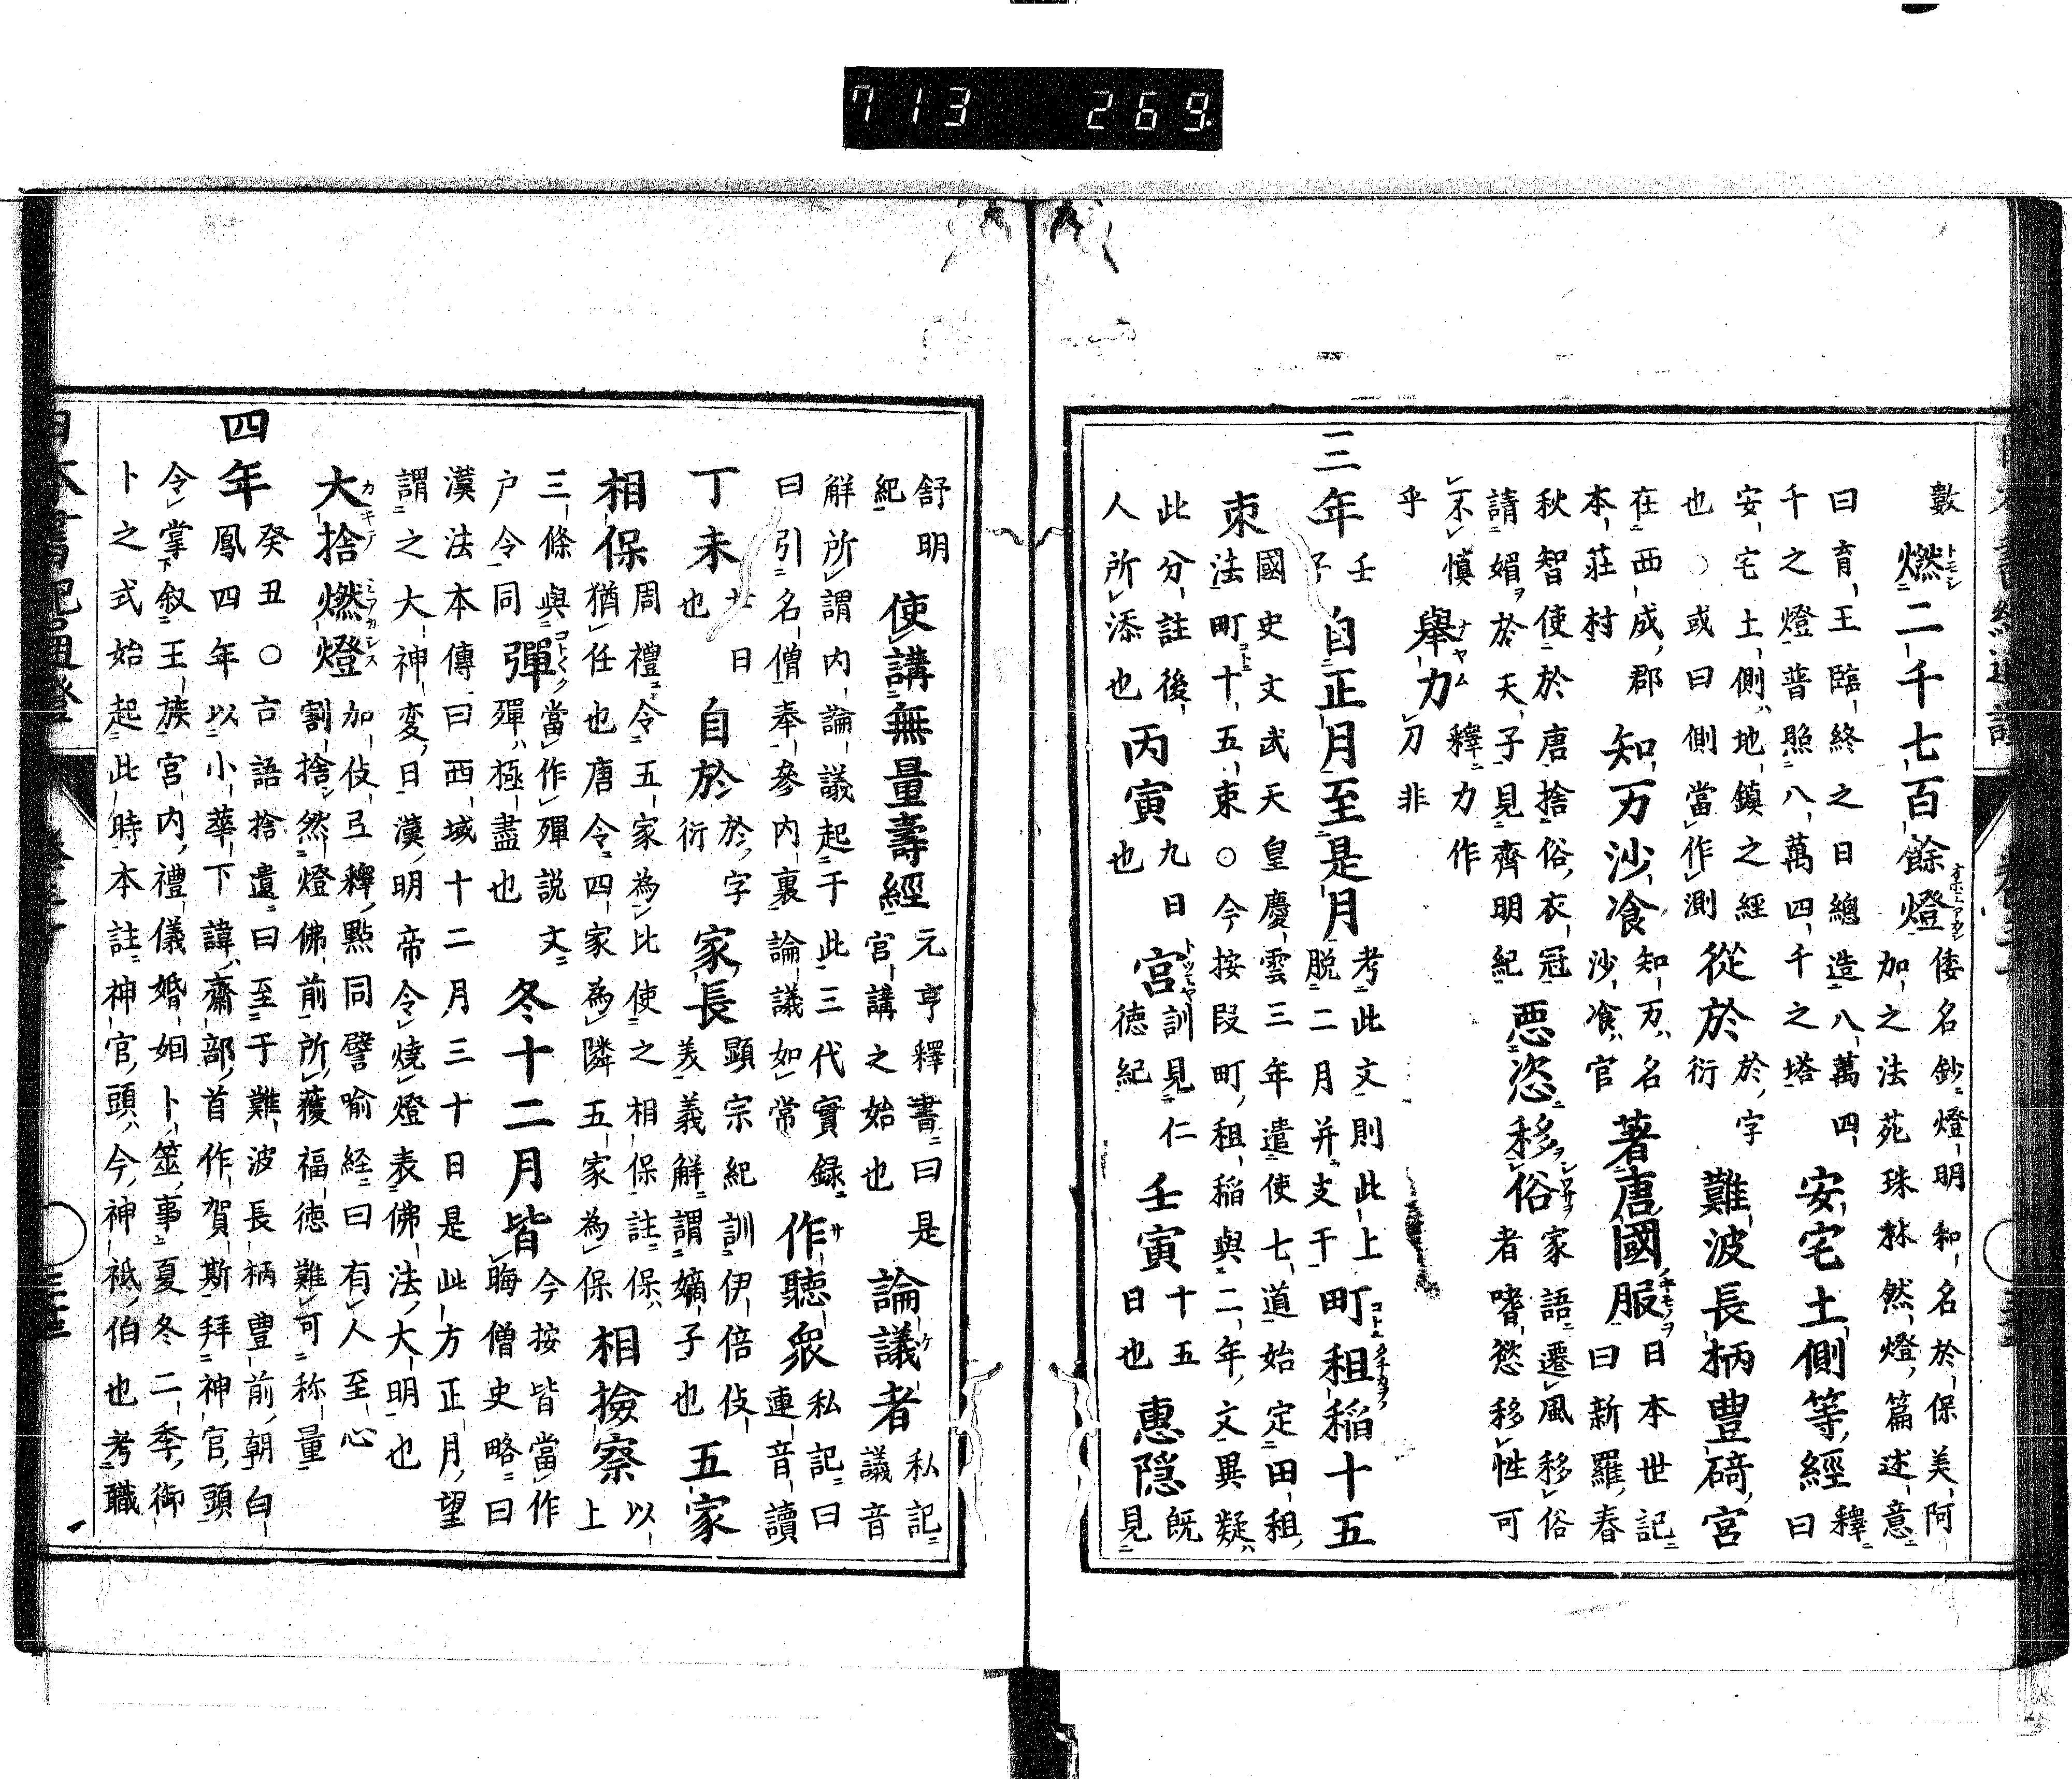 數燃二千七百餘燈倭名鈔燈明和名於保美阿加之法苑珠林然燈篇述意
曰育王臨終之日總造八萬四千之燈普照八萬四千之塔安宅土側等經釋曰
安宅土側地鎮之經也○或曰側當作測從於於字衍難波長柄豊碕宮
在西成郡本莊村知万沙飡知万名沙飡官著唐國服日本世記曰新羅春
秋智使於唐捨俗衣冠請媚於天子見齊明紀悪恣移俗家語遷風移俗者嗜慾移性可
不慎乎舉力釋力作刀非
三年壬子自正月至是月考此文則此上脱二月并支干町租稲十五
束國史文武天皇慶雲三年遣使七道始定田租法町十五束○今按段町租稲與二年文異疑
此分註後人所添也丙寅九日也宮訓見仁徳紀壬寅十五日也惠隠既見
舒明紀使講無量壽經元亨釋書曰是官講之始也論議者私記議音
解所謂内論議起于此三代實録曰引名僧奉參内裏論議如常作聽衆私記曰連音讀
丁未廿日也自於於字衍家長顯宗紀訓伊倍伎美義解謂嫡子也五家
相保周禮令五家為比使之相保註保猶任也唐令四家為隣五家為保相撿察以上
三條與户令同彈當作殫説文殫極盡也冬十二月皆今按皆當作晦僧史略曰
漢法本傳曰西域十二月三十日是此方正月望謂之大神変日漢明帝令燒燈表佛法大明也
大捨燃燈加伎弖釋點同譬喻経曰有人至心割捨然燈佛前所獲福徳難可称量
四年癸丑○古語捨遺曰至于難波長柄豊前朝白鳳四年以小華下諱齋部首作賀斯拜神官頭
令掌叙王族宮内禮儀婚姻卜筮事夏冬二季御卜之式始起此時本註神官頭今神祇伯也考職
713 269.